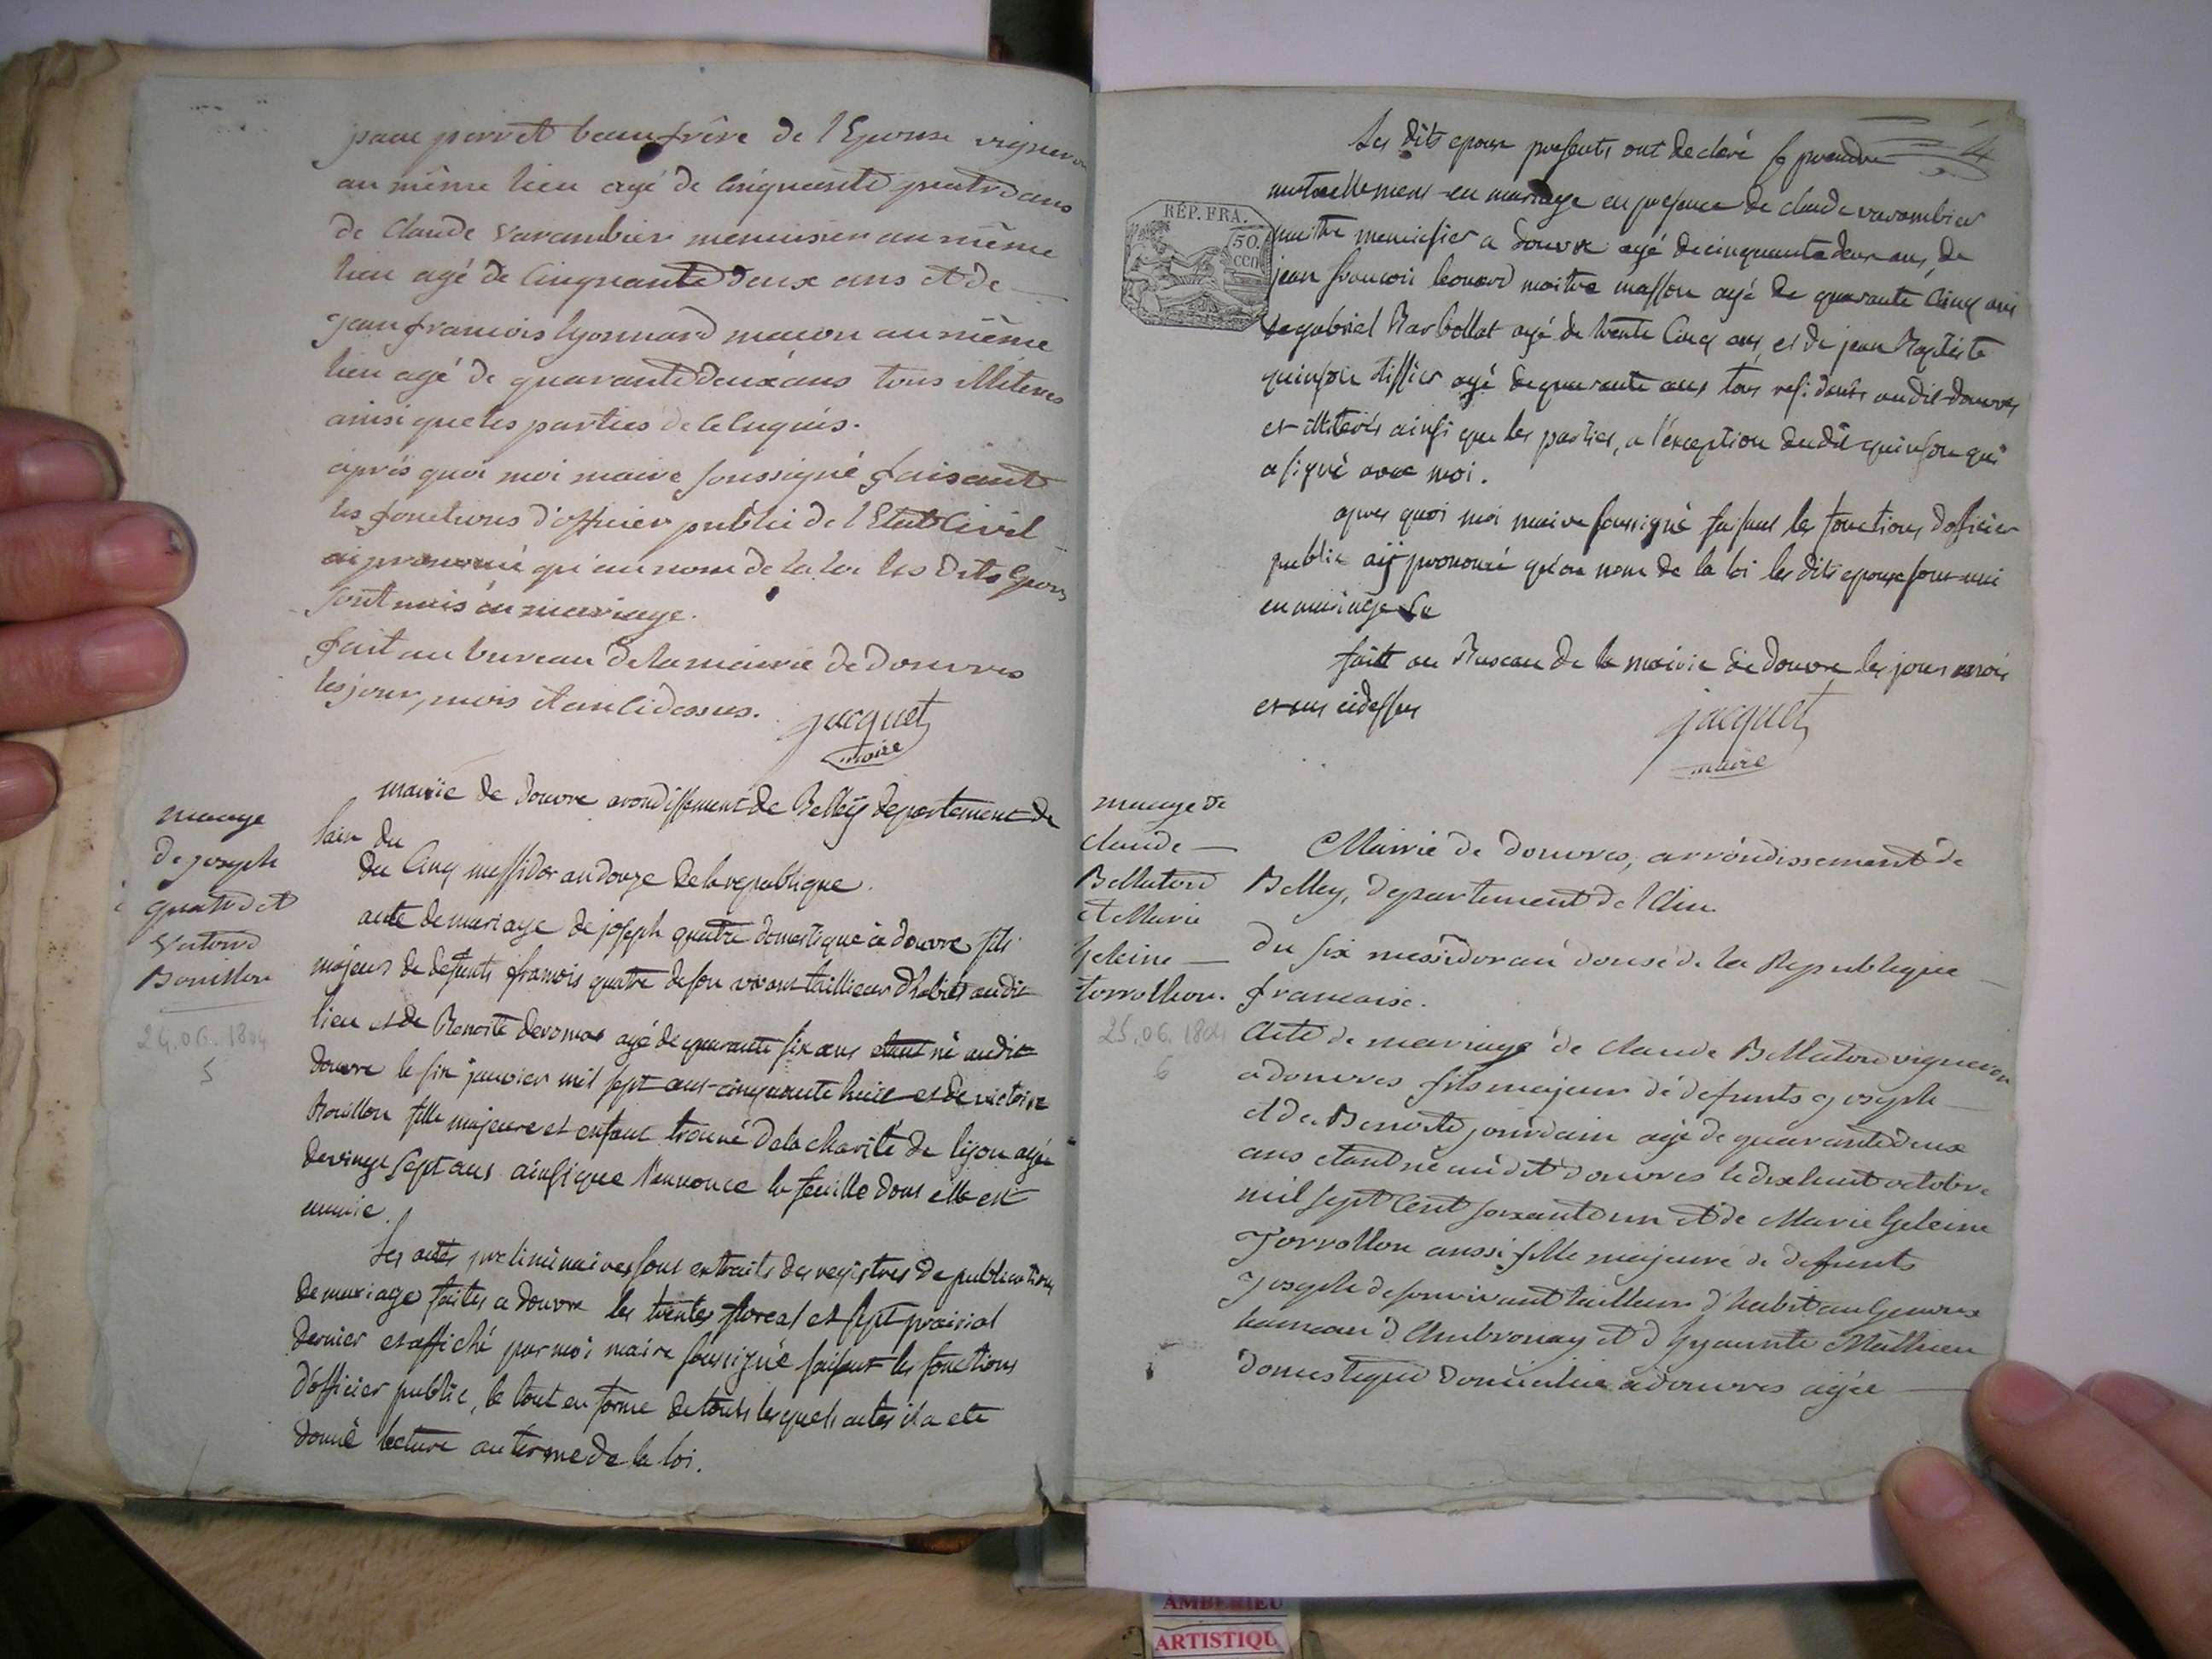 perret beaufrère de l'Epouse vigneron
au même lieu agé de Cinquante quatre ans
de Claude Varambier menuisier au même
lieu agé de Cinquante deux ans et de
Jean francois lyonnard macon au même
lieu agé de quarante deux ans tous illiteres
ainsi que les parties de ce enquis.
après quoi moi maire soussigné faisant
les fonctions d'officier public de l'Etat Civil
ai prononcé qu'au nom de la loi les dits Epoux
sont unis en mariage.
fait au bureau de la mairie de douvres
les jour, mois et an Cidessus.
jacquet
maire
mariage
de joseph
quatre et
Victoire
Bouillon
24.06.1804
5
mairie de douvre arondissement de Belley departement de
lain du
du Cinq messidor an douze de la republique.
acte de mariage de joseph quatre domestique à douvre fils
majeur de defunts francois quatre de son vivant taillieur d'habits audit
lieu et de Benoite devomas agé de quarante six ans etant né audit
douvre le six janvier mil sept cens cinquante huit et de victoire
Bouillon fille majeure et enfant trouvé de la charité de lyon agée
de vingt sept ans ainsi que l'annonce la feuille dont elle est
munie.
Les actes preliminaires sont extraits des registres de publications
de mariage faites a douvre les trente floreal et sept prairial
dernier et affiché par moi maire soussigné faisant les fonctions
d'officier public, le tout en forme de touts lesquels actes il a ete
donné lecture au terme de la loi.
4
Les dits epoux presents ont declaré se prendre
mutuellement en mariage en presence de claude varambier
maitre menuisier a douvre agé de cinquante deux ans, de
jean francois leonard maitre masson agé de quarante cinq ans
de gabriel Barbollat agé de trente Cinq ans, et de jean Baptiste
quinson tissier agé de quarante ans tous residents audit douvres
et illiterés ainsi que les parties, a l'exception dudit quinson qui
a signé avec moi.
RÉP. FRA.
50.
CEN
apres quoi moi maire soussigné faisant les fonctions d'officier
public aij prononcé qu'au nom de la loi les dits epoux sont uni
en mariage
fait au Bureau de la mairie de douvre les jour mois
et ans cidessus
jacquet
maire
mariage de
claude
Bellaton
et Marie
heleine
torrollion.
25.06.1804
6
Mairie de douvres, arrondissement de
Belley, departement de l'Ain.
du six messidor an douse de la Republique
francaise.
Acte de mariage de claude Bellaton vigneron
a douvres fils majeur de defunts joseph
et de Benoite jourdain agé de quarante deux
ans etant né audit douvres le dixhuit octobre
mil sept Cent soixante un et de Marie heleine
Torrollon aussi fille majeure de defunts
joseph de son vivant tailleur d'habit au
hameau d'Ambronay et d'hyacinte Mathieu
domestique domiciliée a douvres agée
AMBERIEU
ARTISTIQU